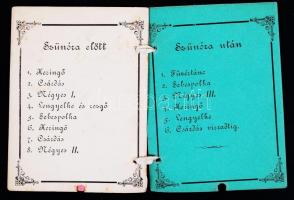 Szünóra előtt
1. Keringő
2. Csárdás
3. Négyes I.
4. Lengyelke és rezgő
5. Sebespolka
6. Keringő
7. Csárdás
8. Négyes II.
Szünóra után
1. Füzértánc
2. Sebespolka
3. Négyes III.
4. Keringő
5. Lengyelke
6. Csárdás virradtig.